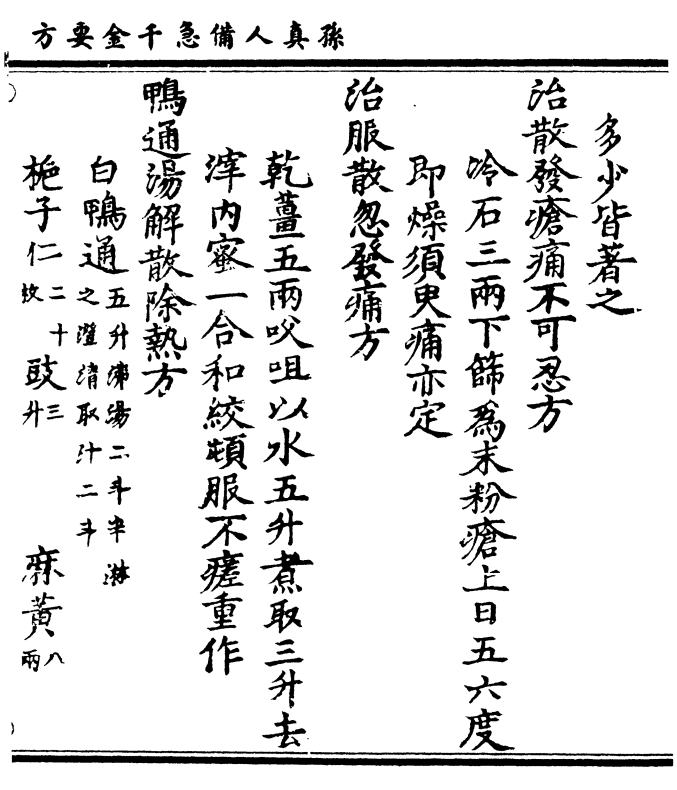 孫真人備急千金要方
多少皆著之
治散發瘡痛不可忍方
冷石三兩下篩為末粉瘡上日五六度
即燥須臾痛亦定
治服散忽發痛方
乾薑五兩㕮咀以水五升煮取三升去
滓內蜜一合和絞頓服不瘥重作
鴨通湯解散除熱方
白鴨通五升沸湯二斗半淋之澄清取汁二斗
梔子仁二十枚 豉三升 麻黃八兩